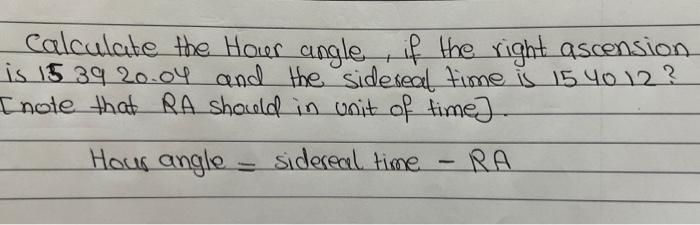 Calculate the Hour angle, if the right ascension
is 15 39 20.04 and the sidereal time is 15 40 12?
[note that RA should in unit of time].
Hour angle = sidereal time - RA